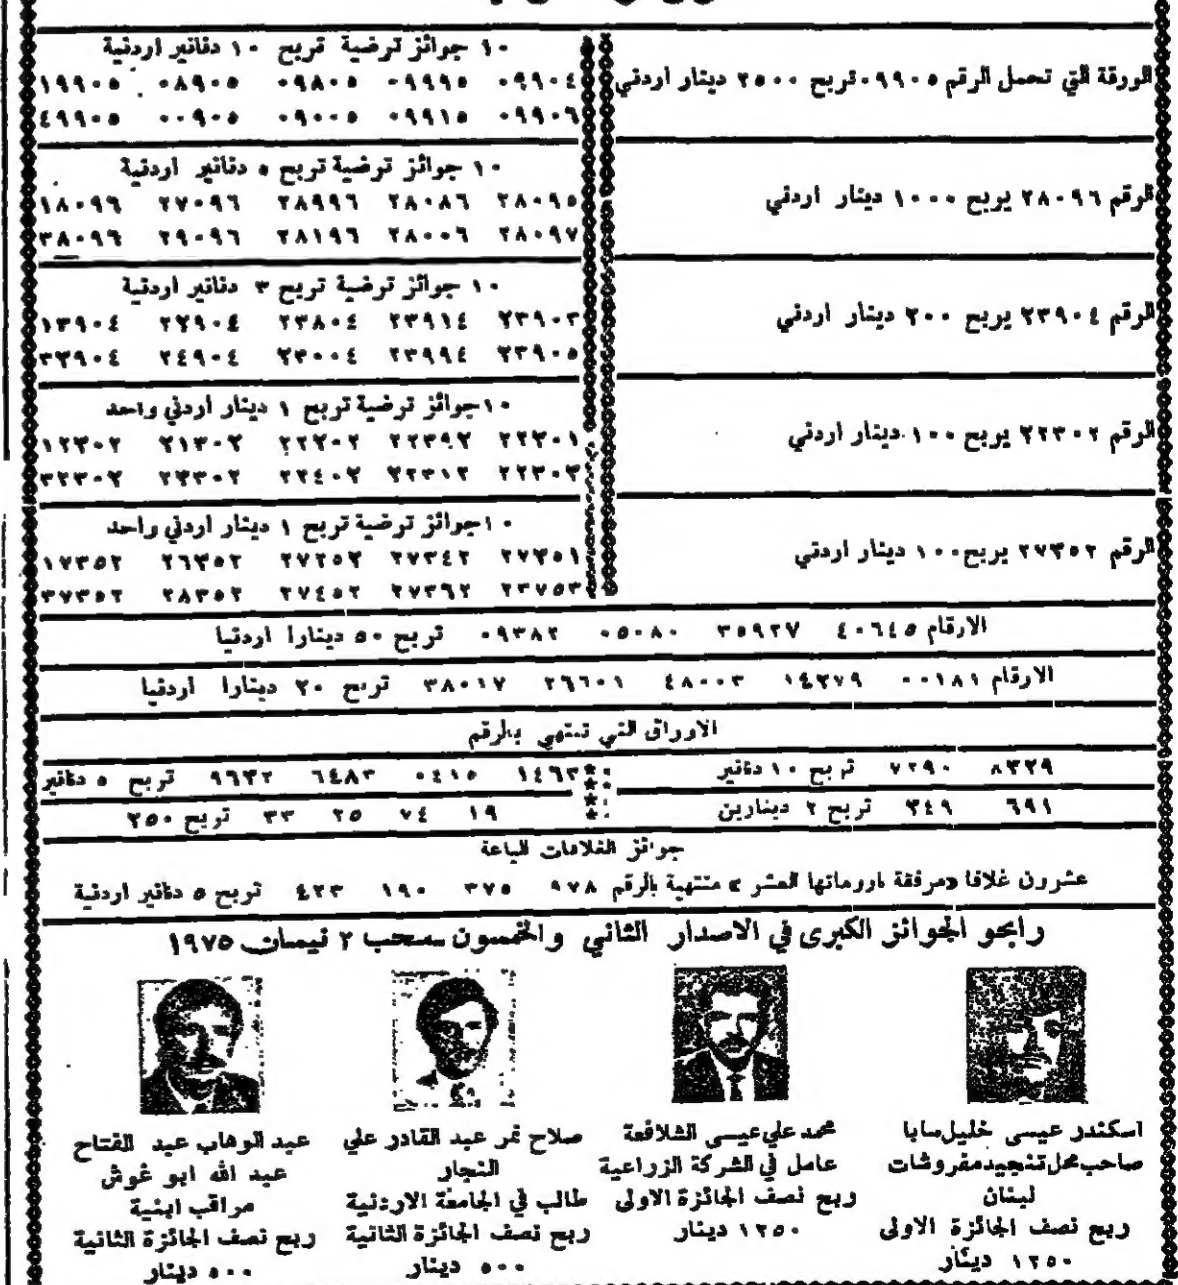 الورقة التي تحمل الرقم ٠٩٩٠٥ تربح ٢٥٠٠ دينار اردني
١٠ جوائز ترضية تربح ١٠ دنانير اردنية
٠٩٩٠٤ ٠٩٩٩٥ ٠٩٨٠٥ ٠٨٩٠٥ ١٩٩٠٥
٠٩٩٠٦ ٠٩٩١٥ ٠٩٠٠٥ ٠٠٩٠٥ ٤٩٩٠٥
الرقم ٢٨٠٩٦ يربح ١٠٠٠ دينار اردني
١٠ جوائز ترضية تربح ٥ دنانير اردنية
٢٨٠٩٥ ٢٨٠٨٦ ٢٨٩٩٦ ٢٧٠٩٦ ١٨٠٩٦
٢٨٠٩٧ ٢٨٠٠٦ ٢٨١٩٦ ٢٩٠٩٦ ٣٨٠٩٦
الرقم ٢٣٩٠٤ يربح ٢٠٠ دينار اردني
١٠ جوائز ترضية تربح ٣ دنانير اردنية
٢٣٩٠٣ ٢٣٩١٤ ٢٣٨٠٤ ٢٢٩٠٤ ١٣٩٠٤
٢٣٩٠٥ ٢٣٩٩٤ ٢٣٠٠٤ ٢٤٩٠٤ ٣٣٩٠٤
الرقم ٢٢٣٠٢ يربح ١٠٠ دينار اردني
١٠ جوائز ترضية تربح ١ دينار اردني واحد
٢٢٣٠١ ٢٢٣٩٢ ٢٢٢٠٢ ٢١٣٠٢ ١٢٣٠٢
٢٢٣٠٣ ٢٢٣١٢ ٢٢٤٠٢ ٢٣٣٠٢ ٣٢٣٠٢
الرقم ٢٧٣٥٢ يربح ١٠٠ دينار اردني
١٠ جوائز ترضية تربح ١ دينار اردني واحد
٢٧٣٥١ ٢٧٣٤٢ ٢٧٢٥٢ ٢٦٣٥٢ ١٧٣٥٢
٢٣٧٥٣ ٢٧٣٦٢ ٢٧٤٥٢ ٢٨٣٥٢ ٣٧٣٥٢
الارقام ٤٠٦٤٥ ٣٥٩٢٧ ٠٥٠٨٠ ٠٩٣٨٢ تربح ٥٠ دينارا اردنيا
الارقام ٠٠١٨١ ١٤٢٧٩ ٤٨٠٠٣ ٢٦٦٠١ ٣٨٠١٧ تربح ٢٠ دينارا اردنيا
الاوراق التي تنتهي بالرقم
٨٣٢٩ ٧٢٩٠ تربح ١٠ دنانير
١٤٦٣ ٠٤١٥ ٦٤٨٣ ٩٦٣٢ تربح ٥ دنانير
٦٩١ ٣٤٩ تربح ٢ دينارين
١٩ ٧٤ ٢٥ ٣٣ تربح ٢٥٠
جوائز الغلافات للباعة
عشرون غلافا «مرفقة باروماتها العشر» منتهية بالرقم ٩٧٨ ٣٧٥ ١٩٠ ٤٢٣ تربح ٥ دنانير اردنية
رابحو الجوائز الكبرى في الاصدار الثاني والخمسون سحب ٢ نيسان ١٩٧٥
اسكندر عيسى خليل سابا
صاحب محل تنجيد مفروشات
لبنان
ربح نصف الجائزة الاولى
١٢٥٠ دينار
محمد علي عيسى الشلافعة
عامل في الشركة الزراعية
ربح نصف الجائزة الاولى
١٢٥٠ دينار
صلاح نمر عبد القادر علي
النجار
طالب في الجامعة الاردنية
ربح نصف الجائزة الثانية
٥٠٠ دينار
عبد الوهاب عبد الفتاح
عبد الله ابو غوش
مراقب ابنية
ربح نصف الجائزة الثانية
٥٠٠ دينار